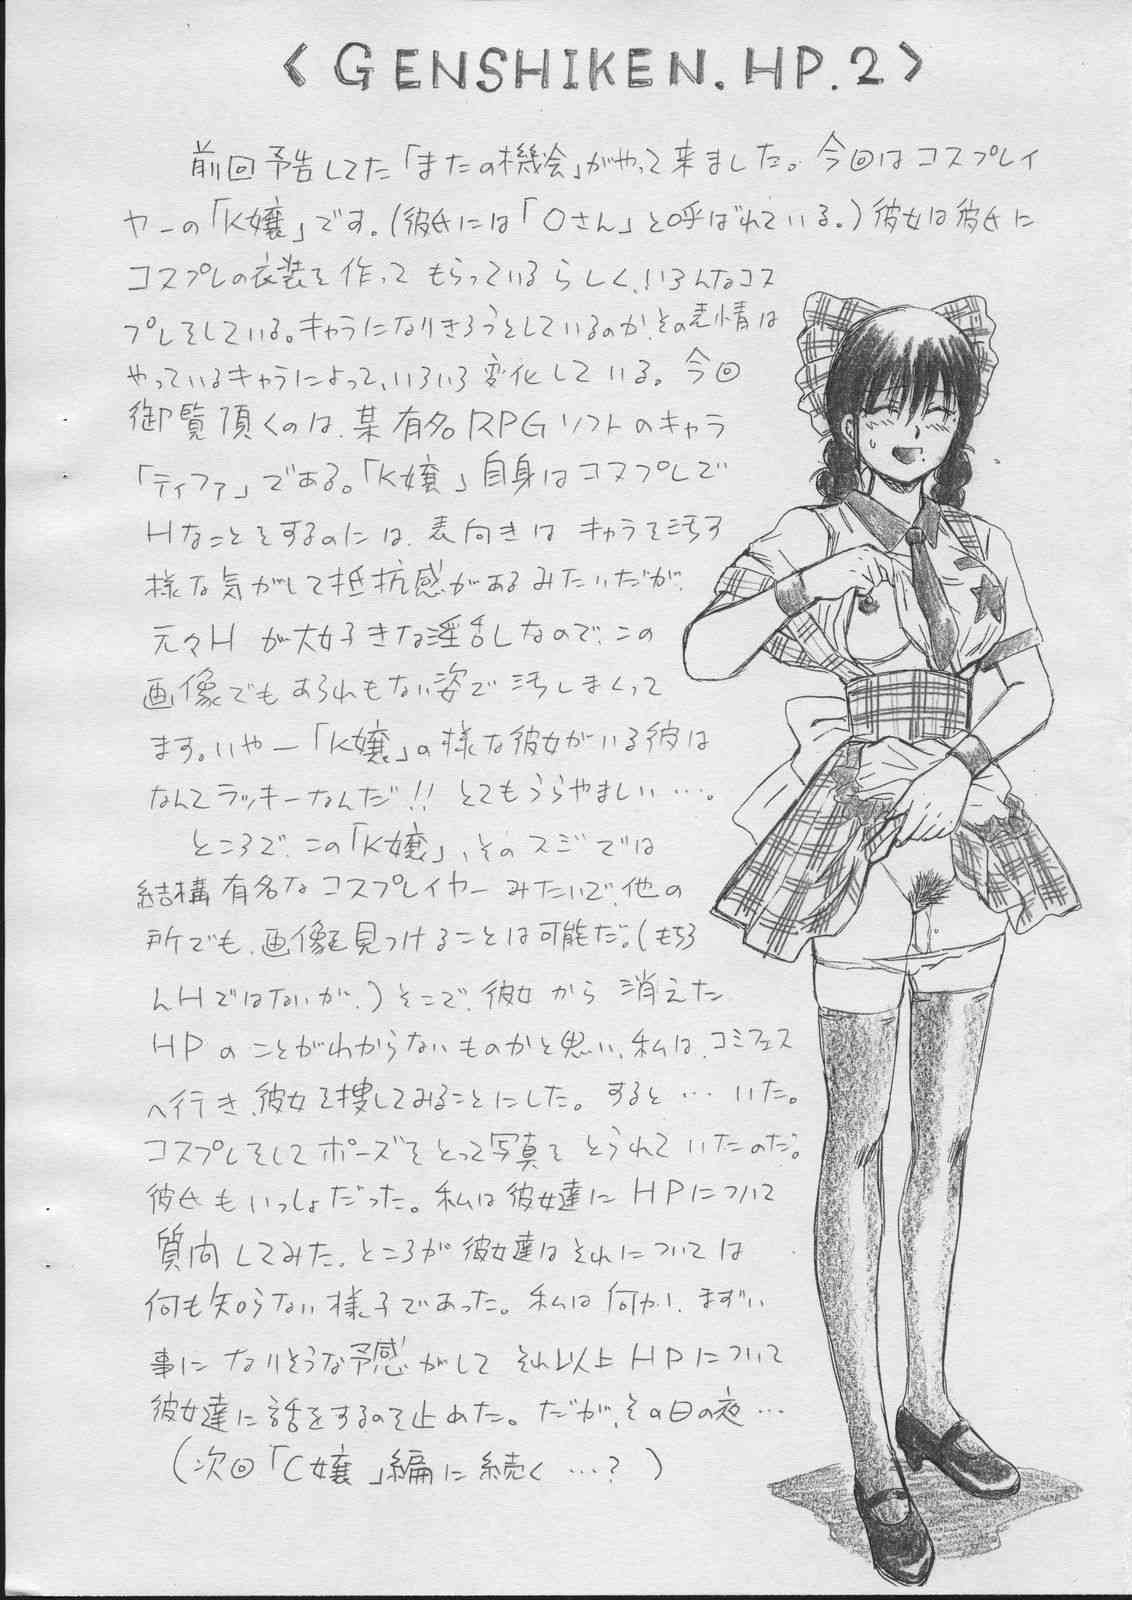 <GENSHIKEN.HP.2>
前回予告してた「またの機会」がやって来ました。今回はコスプレイ
ヤーの「K嬢」です。(彼氏には「Oさん」と呼ばれている。)彼女は彼氏に
コスプレの衣装を作ってもらっているらしく、いろんなコス
プレをしている。キャラになりきろうとしているのか、その表情は
やっているキャラによって、いろいろ変化している。今回
御覧頂くのは、某有名RPGソフトのキャラ
「ティファ」である。「K嬢」自身はコスプレで
Hなことをするのには、表向きはキャラを汚す
様な気がして抵抗感があるみたいだが、
元々Hが大好きな淫乱しなので、この
画像でもあられもない姿で汚しまくって
ます。いやー「K嬢」の様な彼女がいる彼は
なんてラッキーなんだ!!とてもうらやましい…。
ところで、この「K嬢」、そのスジでは
結構有名なコスプレイヤーみたいで、他の
所でも、画像を見つけることは可能だ。(もちろ
んHではないが、)そこで、彼女から消えた
HPのことがわからないものかと思い、私は、コミフェス
へ行き、彼女を捜してみることにした。すると…いた。
コスプレをしてポーズをとって写真をとられていたのだ。
彼氏もいっしょだった。私は彼女達にHPについて
質問してみた。ところが彼女達はそれについては
何も知らない様子であった。私は何か、まずい
事になりそうな予感がしてそれ以上HPについて
彼女達に話をするのを止めた。だが、その日の夜…
(次回「C嬢」編に続く…?)